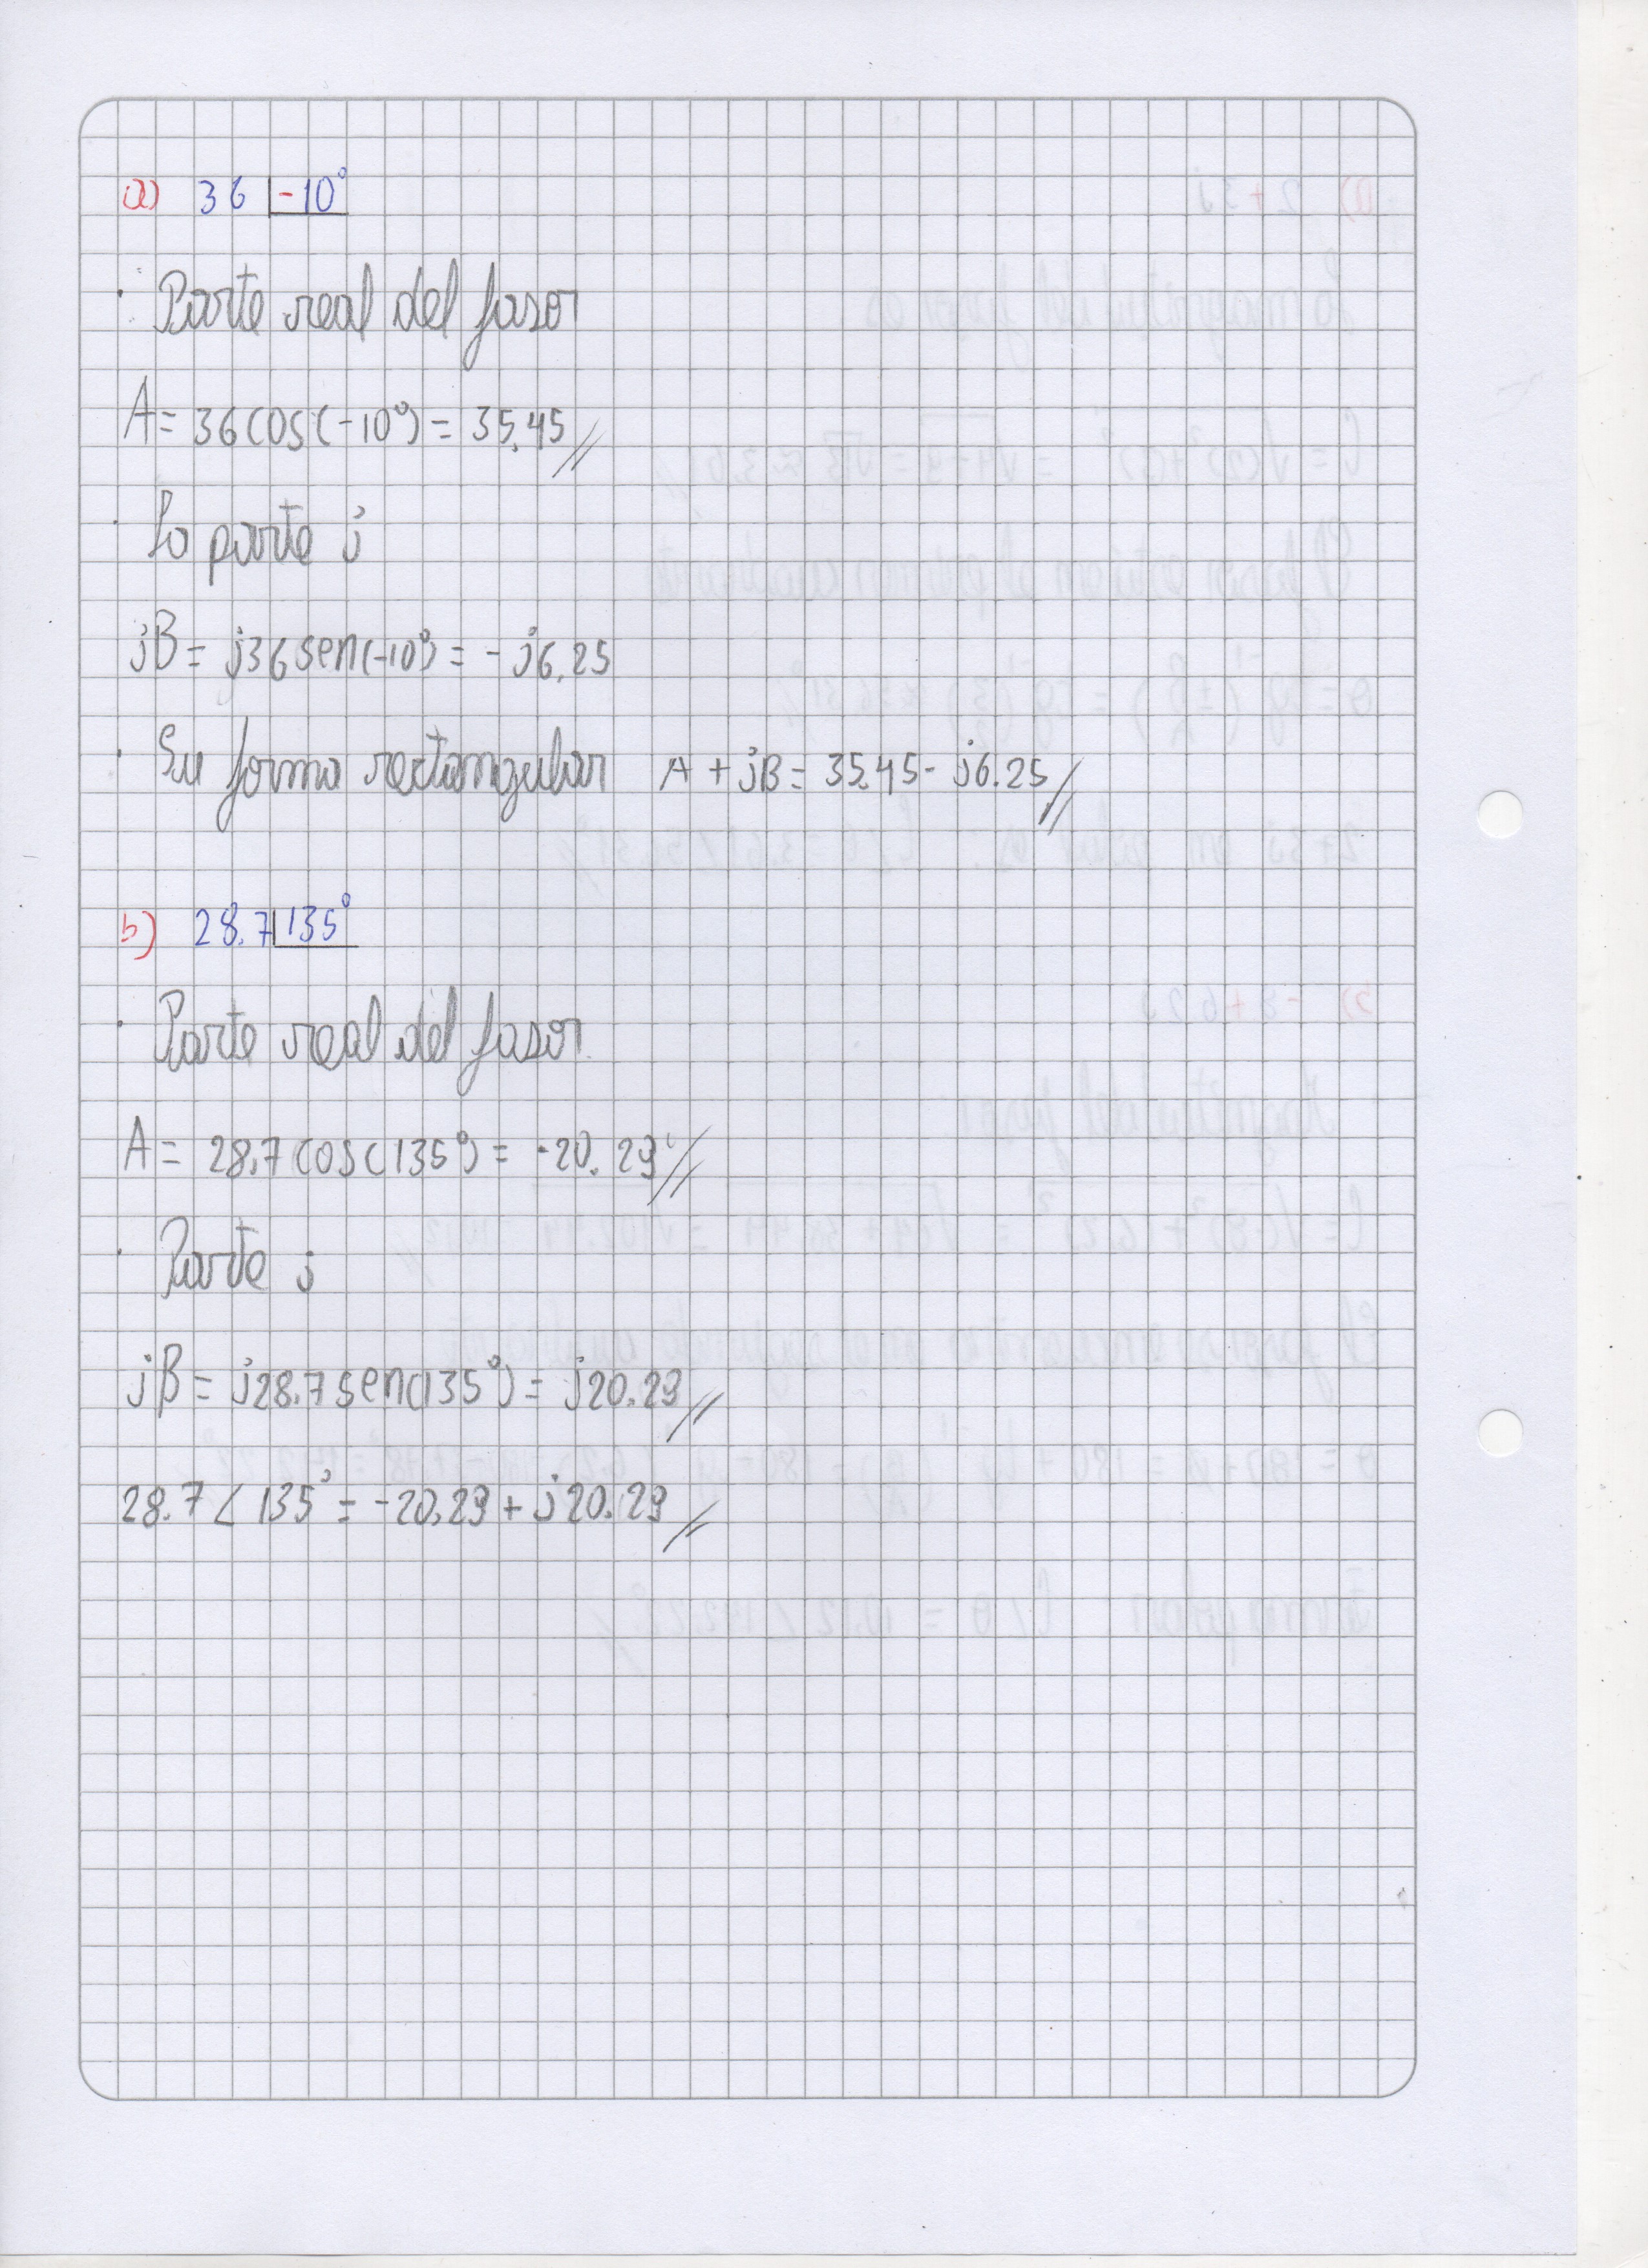 a) 36 ∠-10°
· Parte real del fasor
A = 36 cos(-10°) = 35.45 //
· La parte j
jB = j36 sen(-10°) = -j6.25
· Su forma rectangular A + jB = 35.45 - j6.25 //
b) 28.7 ∠135°
· Parte real del fasor.
A = 28.7 cos(135°) = -20.29 //
· Parte j
jB = j28.7 sen(135°) = j20.29 //
28.7 ∠ 135° = -20.29 + j20.29 //